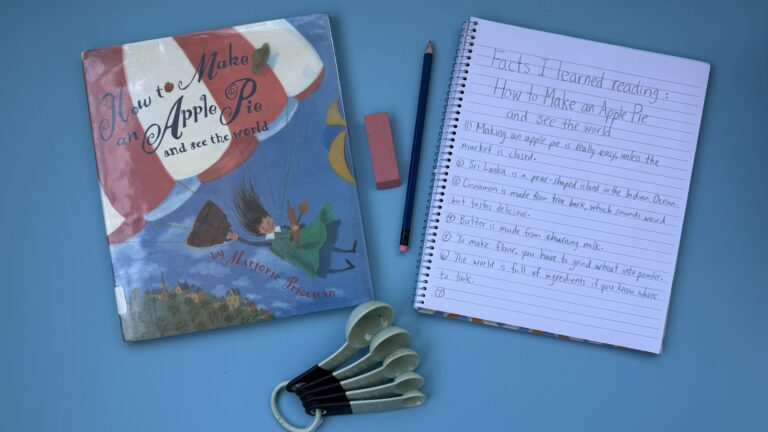 How to Make
an Apple Pie
and see the world
by Marjorie Priceman
Facts I learned reading:
How to Make an Apple Pie
and see the world
① Making an apple pie is really easy, unless the
market is closed.
② Sri Lanka is a pear-shaped island in the Indian Ocean.
③ Cinnamon is made from tree bark, which sounds weird
but tastes delicious.
④ Butter is made from churning milk.
⑤ To make flour, you have to grind wheat into powder.
⑥ The world is full of ingredients if you know where
to look.
⑦